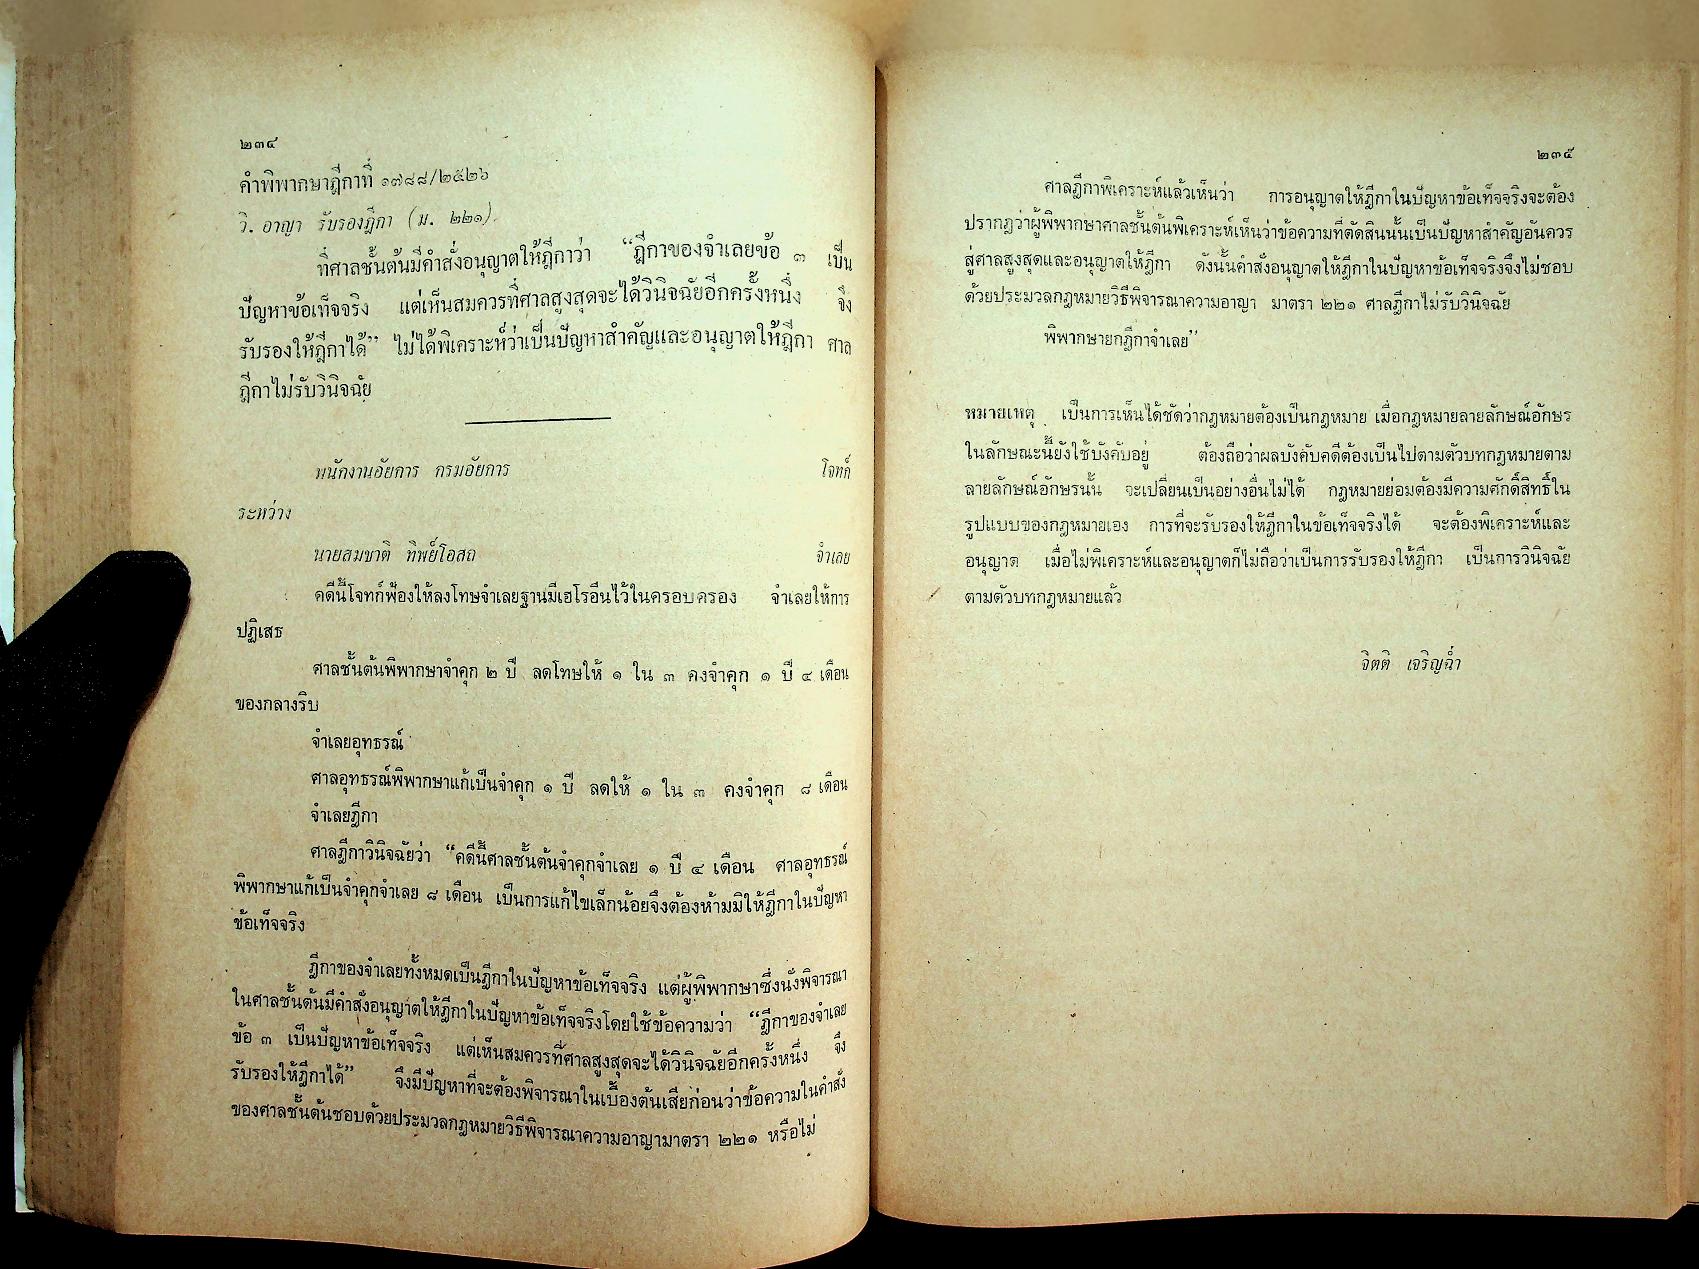 ๒๓๔
คำพิพากษาฎีกาที่ ๑๗๘๘/๒๕๒๖
วิ. อาญา รับรองฎีกา (ม. ๒๒๑)
ที่ศาลชั้นต้นมีคำสั่งอนุญาตให้ฎีกาว่า “ฎีกาของจำเลยข้อ ๓ เป็น
ปัญหาข้อเท็จจริง แต่เห็นสมควรที่ศาลสูงสุดจะได้วินิจฉัยอีกครั้งหนึ่ง จึง
รับรองให้ฎีกาได้” ไม่ได้พิเคราะห์ว่าเป็นปัญหาสำคัญและอนุญาตให้ฎีกา ศาล
ฎีกาไม่รับวินิจฉัย
พนักงานอัยการ กรมอัยการ โจทก์
ระหว่าง
นายสมชาติ ทิพย์โอสถ จำเลย
คดีนี้โจทก์ฟ้องให้ลงโทษจำเลยฐานมีเฮโรอีนไว้ในครอบครอง จำเลยให้การ
ปฏิเสธ
ศาลชั้นต้นพิพากษาจำคุก ๒ ปี ลดโทษให้ ๑ ใน ๓ คงจำคุก ๑ ปี ๔ เดือน
ของกลางริบ
จำเลยอุทธรณ์
ศาลอุทธรณ์พิพากษาแก้เป็นจำคุก ๑ ปี ลดให้ ๑ ใน ๓ คงจำคุก ๘ เดือน
จำเลยฎีกา
ศาลฎีกาวินิจฉัยว่า “คดีนี้ศาลชั้นต้นจำคุกจำเลย ๑ ปี ๔ เดือน ศาลอุทธรณ์
พิพากษาแก้เป็นจำคุกจำเลย ๘ เดือน เป็นการแก้ไขเล็กน้อยจึงต้องห้ามมิให้ฎีกาในปัญหา
ข้อเท็จจริง
ฎีกาของจำเลยทั้งหมดเป็นฎีกาในปัญหาข้อเท็จจริง แต่ผู้พิพากษาซึ่งนั่งพิจารณา
ในศาลชั้นต้นมีคำสั่งอนุญาตให้ฎีกาในปัญหาข้อเท็จจริงโดยใช้ข้อความว่า “ฎีกาของจำเลย
ข้อ ๓ เป็นปัญหาข้อเท็จจริง แต่เห็นสมควรที่ศาลสูงสุดจะได้วินิจฉัยอีกครั้งหนึ่ง จึง
รับรองให้ฎีกาได้” จึงมีปัญหาที่จะต้องพิจารณาในเบื้องต้นเสียก่อนว่าข้อความในคำสั่ง
ของศาลชั้นต้นชอบด้วยประมวลกฎหมายวิธีพิจารณาความอาญามาตรา ๒๒๑ หรือไม่
๒๓๕
ศาลฎีกาพิเคราะห์แล้วเห็นว่า การอนุญาตให้ฎีกาในปัญหาข้อเท็จจริงจะต้อง
ปรากฏว่าผู้พิพากษาศาลชั้นต้นพิเคราะห์เห็นว่าข้อความที่ตัดสินนั้นเป็นปัญหาสำคัญอันควร
สู่ศาลสูงสุดและอนุญาตให้ฎีกา ดังนั้นคำสั่งอนุญาตให้ฎีกาในปัญหาข้อเท็จจริงจึงไม่ชอบ
ด้วยประมวลกฎหมายวิธีพิจารณาความอาญา มาตรา ๒๒๑ ศาลฎีกาไม่รับวินิจฉัย
พิพากษายกฎีกาจำเลย”
หมายเหตุ เป็นการเห็นได้ชัดว่ากฎหมายต้องเป็นกฎหมาย เมื่อกฎหมายลายลักษณ์อักษร
ในลักษณะนี้ยังใช้บังคับอยู่ ต้องถือว่าผลบังคับคดีต้องเป็นไปตามตัวบทกฎหมายตาม
ลายลักษณ์อักษรนั้น จะเปลี่ยนเป็นอย่างอื่นไม่ได้ กฎหมายย่อมต้องมีความศักดิ์สิทธิ์ใน
รูปแบบของกฎหมายเอง การที่จะรับรองให้ฎีกาในข้อเท็จจริงได้ จะต้องพิเคราะห์และ
อนุญาต เมื่อไม่พิเคราะห์และอนุญาตก็ไม่ถือว่าเป็นการรับรองให้ฎีกา เป็นการวินิจฉัย
ตามตัวบทกฎหมายแล้ว
จิตติ เจริญฉ่ำ